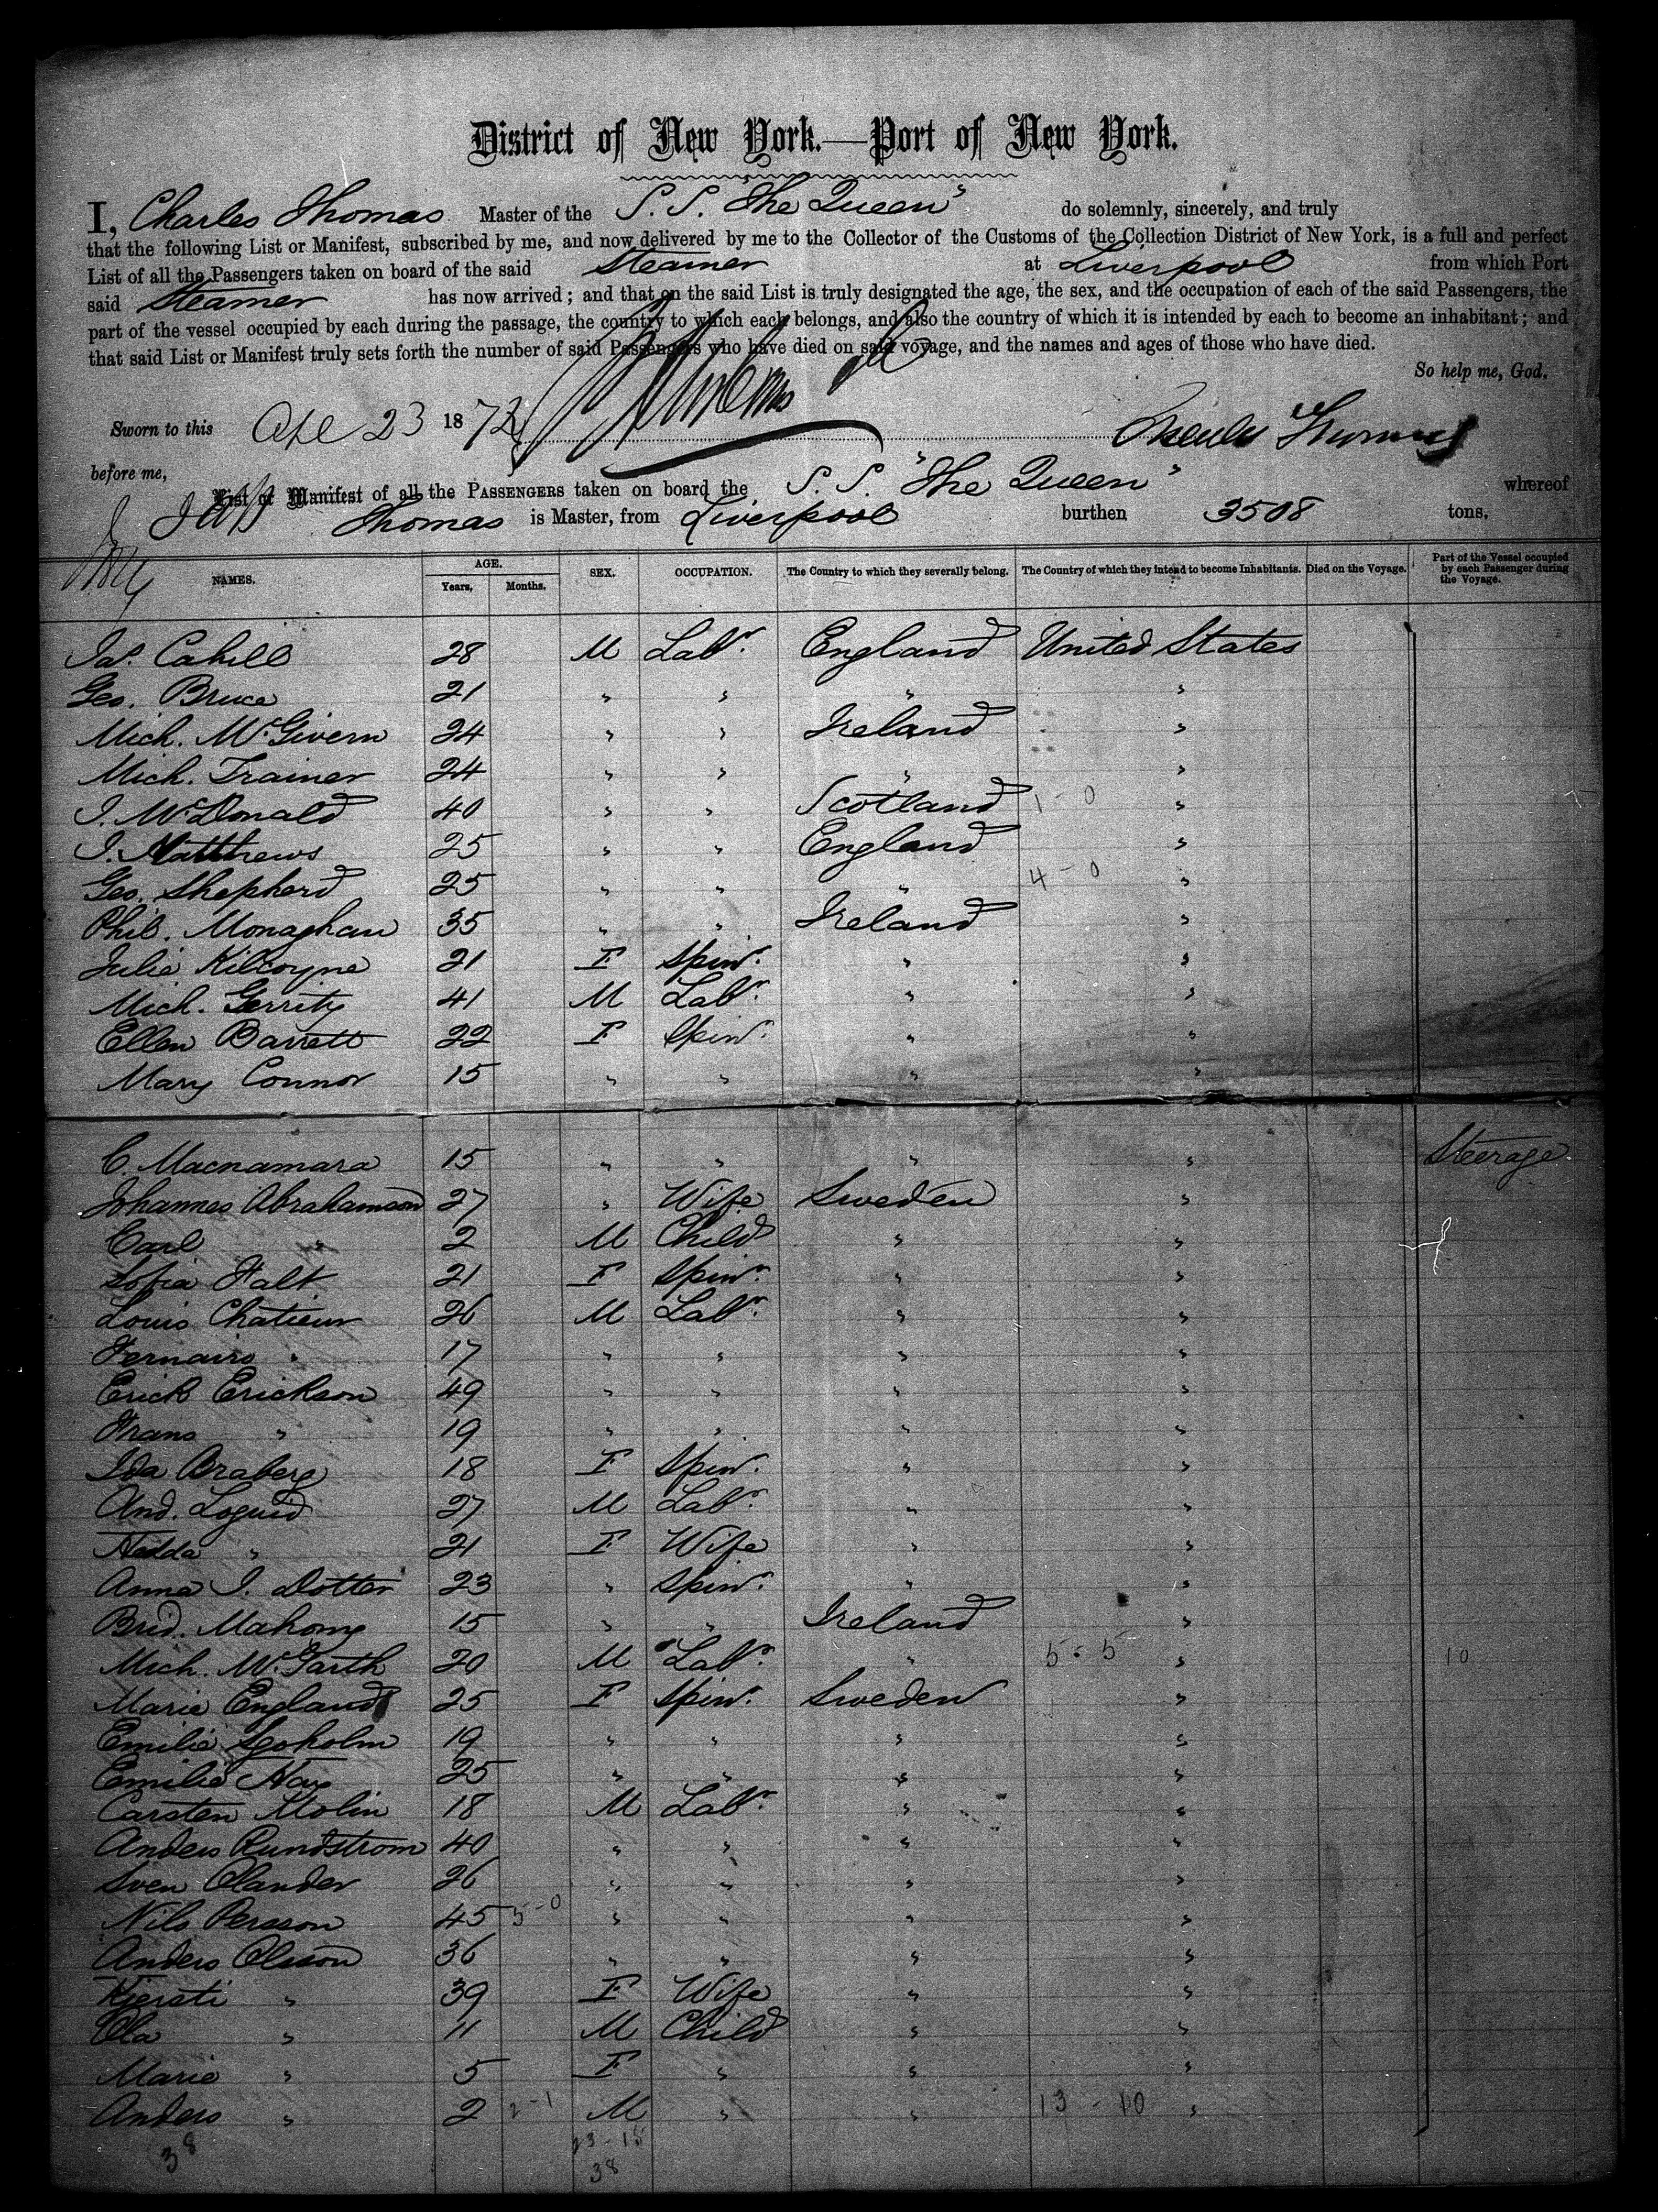 District of New York.—Port of New York.
I, Charles Thomas Master of the S. S. "The Queen" do solemnly, sincerely, and truly
that the following List or Manifest, subscribed by me, and now delivered by me to the Collector of the Customs of the Collection District of New York, is a full and perfect
List of all the Passengers taken on board of the said Steamer at Liverpool from which Port
said Steamer has now arrived; and that on the said List is truly designated the age, the sex, and the occupation of each of the said Passengers, the
part of the vessel occupied by each during the passage, the country to which each belongs, and also the country of which it is intended by each to become an inhabitant; and
that said List or Manifest truly sets forth the number of said Passengers who have died on said voyage, and the names and ages of those who have died.
So help me, God.
Sworn to this Apl 23 1872 Charles Thomas
before me,
List or Manifest of all the PASSENGERS taken on board the S. S. "The Queen" whereof
Thomas is Master, from Liverpool burthen 3508 tons.
NAMES. AGE. Years, Months. SEX. OCCUPATION. The Country to which they severally belong. The Country of which they intend to become Inhabitants. Died on the Voyage. Part of the Vessel occupied by each Passenger during the Voyage.
Jas. Cahill 28 M Labr. England United States
Geo. Bruce 21 " " " "
Mich. McGivern 24 " " Ireland "
Mich. Trainer 24 " " " "
J. McDonald 40 " " Scotland 1-0 "
J. Matthews 25 " " England "
Geo. Shepherd 25 " " " 4-0 "
Phil. Monaghan 35 " " Ireland "
Julia Kilcoyne 21 F Spinr. " "
Mich. Gerrity 41 M Labr. " "
Ellen Barrett 22 F Spinr. " "
Mary Connor 15 " " " "
C. Macnamara 15 " " " " Steerage
Johannes Abrahamson 27 " Wife Sweden "
Carl " 2 M Child " "
Sofia Falt 21 F Spinr. " "
Louis Chatieur 26 M Labr. " "
Fernairs " 17 " " " "
Erick Erickson 49 " " " "
Frans " 19 " " " "
Ida Braberg 18 F Spinr. " "
And. Loguid 27 M Labr. " "
Hedda " 21 F Wife " "
Anna J. Dotter 23 " Spinr. " "
Brid. Mahony 15 " " Ireland "
Mich. McGarth 20 M Labr. " 5-5 " 10
Marie England 25 F Spinr. Sweden "
Emilie Sjoholm 19 " " " "
Emilie Hay 25 " " " "
Carsten Molin 18 M Labr. " "
Anders Rundstrom 40 " " " "
Sven Olander 26 " " " "
Nils Persson 45 5-0 " " " "
Anders Olsson 36 " " " "
Kjersti " 39 F Wife " "
Ola " 11 M Child " "
Marie " 5 F " " "
Anders " 2 2-1 M " " 13-10 "
38 23-15
38